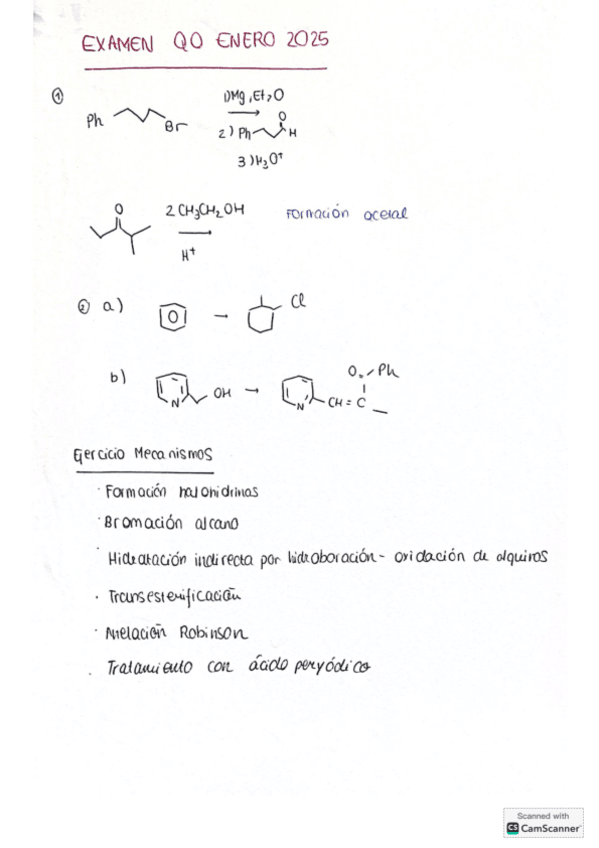 EXAMEN QO ENERO 2025
①
1) Mg, Et₂O
Ph Br 2) Ph O H
3) H₃O⁺
O 2 CH₃CH₂OH Formación acetal
H⁺
② a) Cl
b) N OH N CH = C O Ph
Ejercicio Mecanismos
· Formación halohidrinas
· Bromación alcano
· Hidratación indirecta por hidroboración - oxidación de alquinos
· Transesterificación
· Anelación Robinson
. Tratamiento con ácido peryódico
Scanned with
CS CamScanner